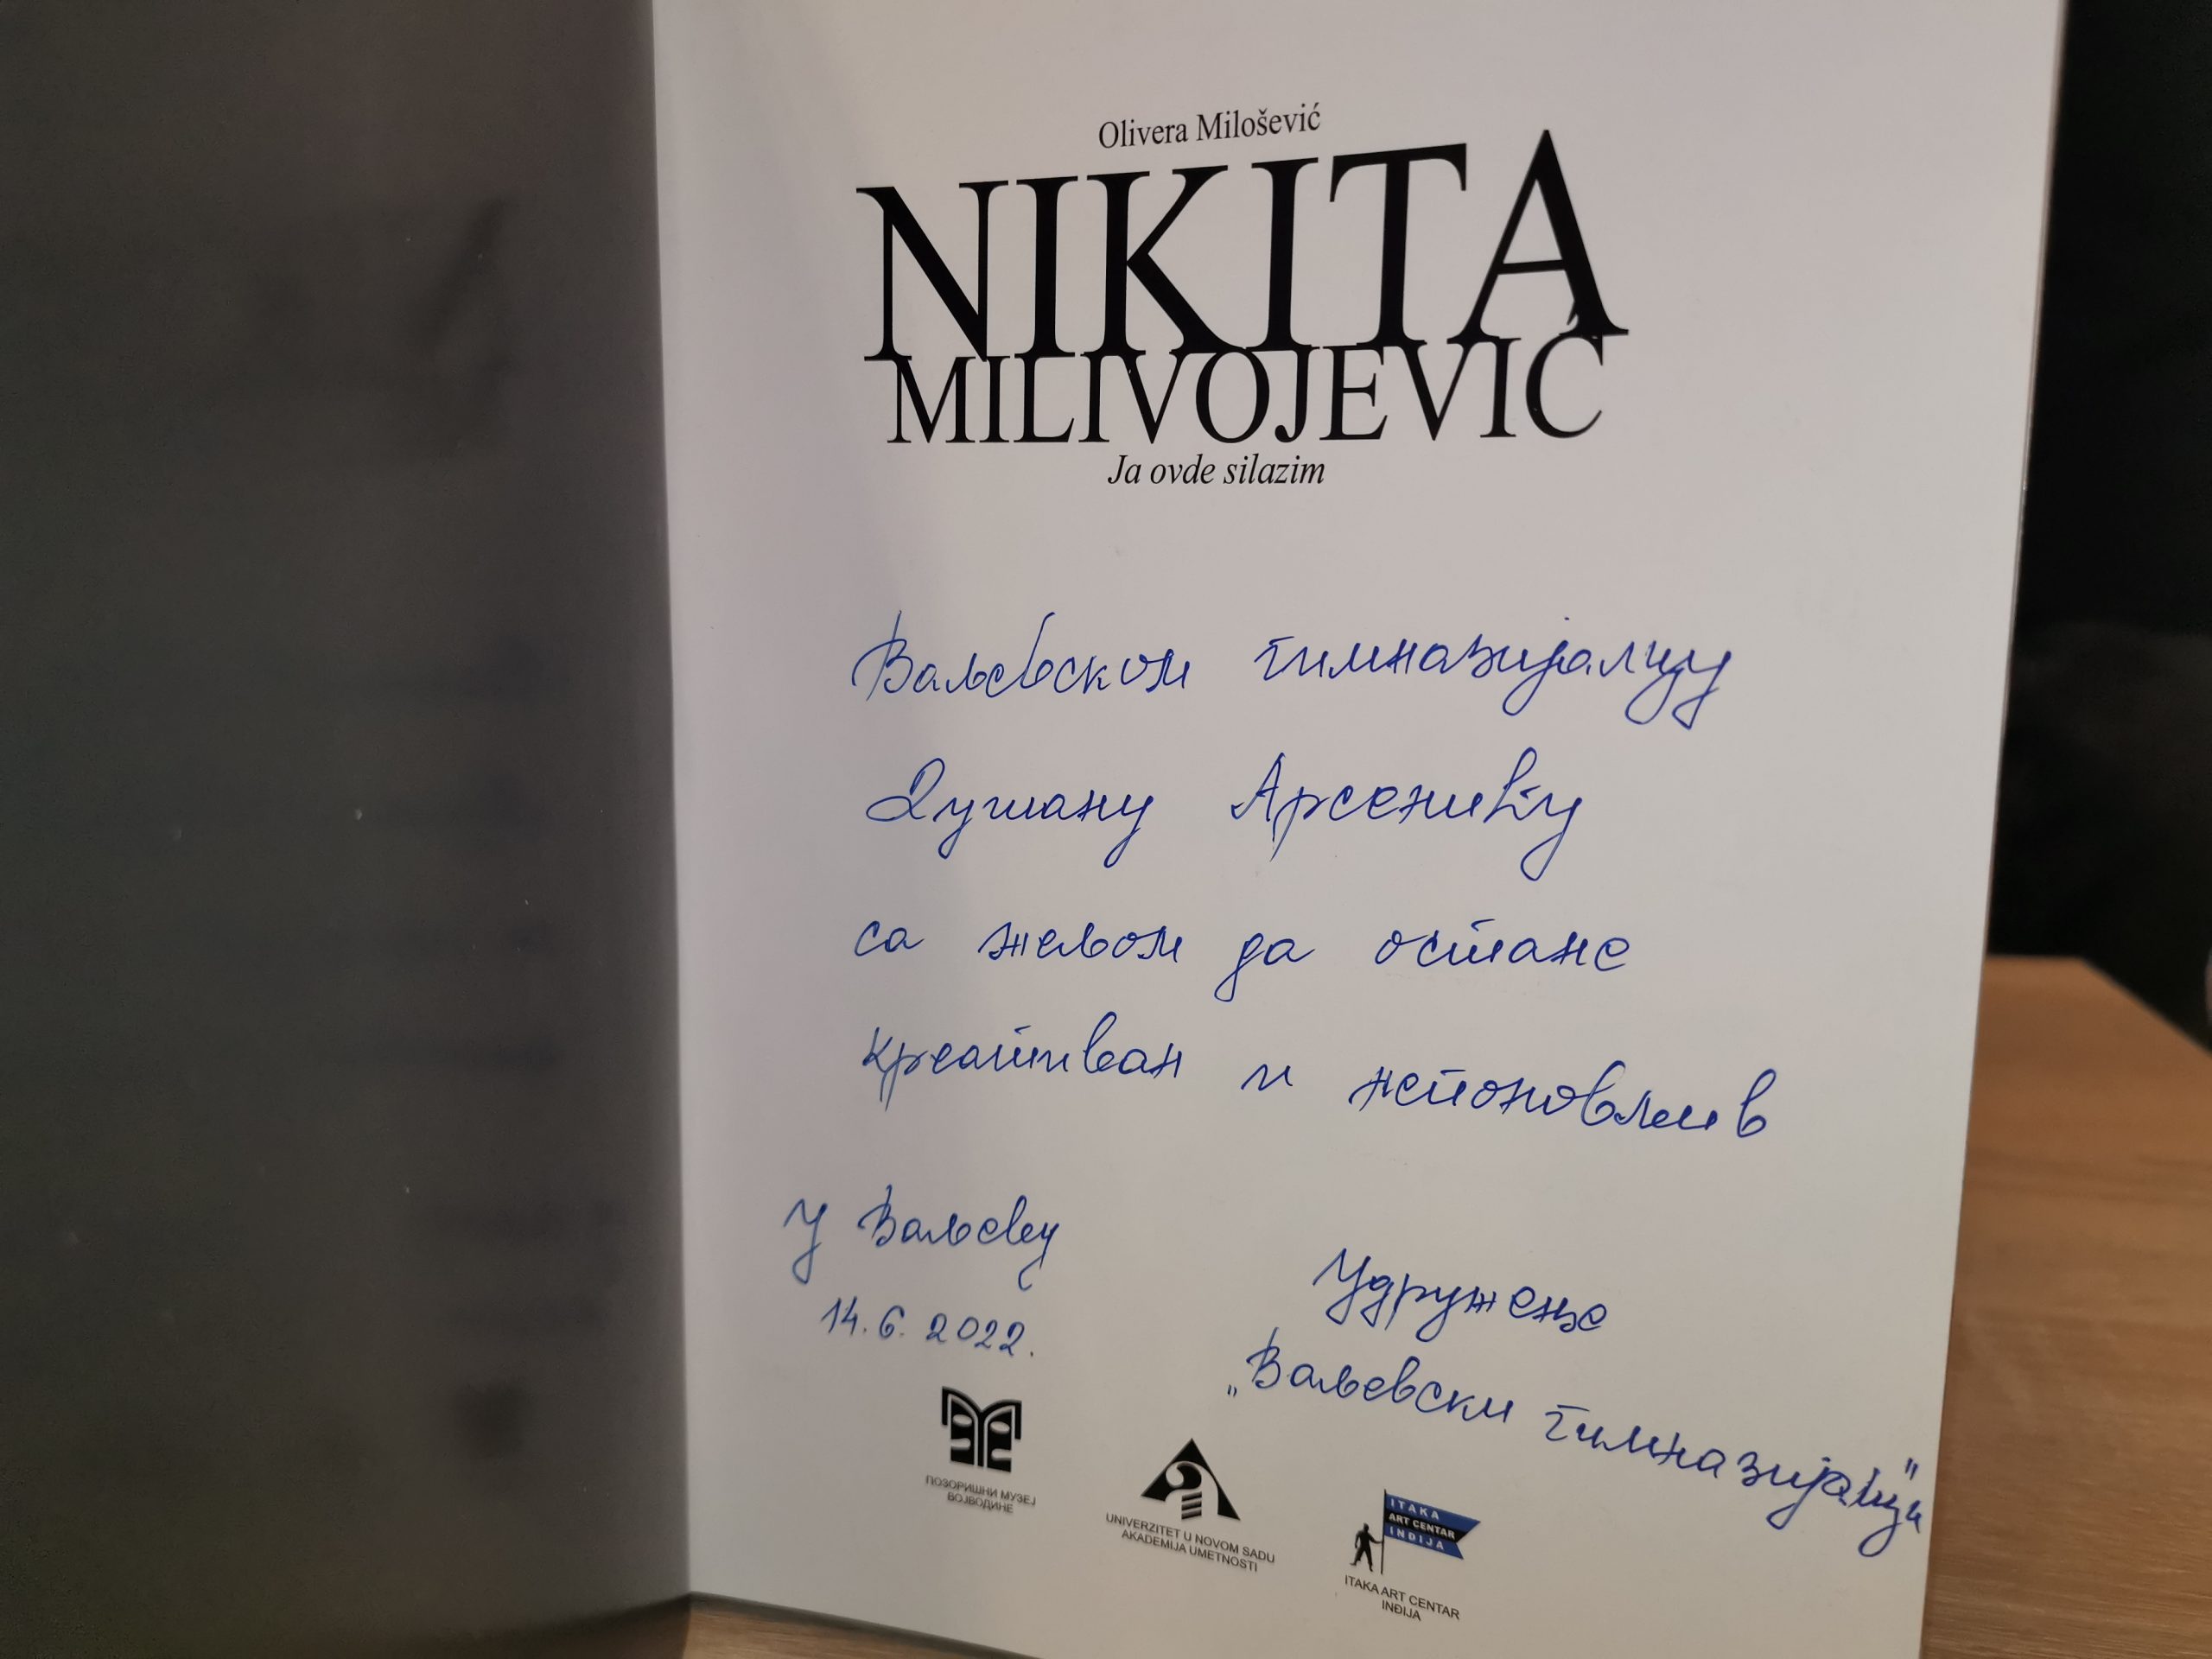 Olivera Milošević
NIKITA
MILIVOJEVIĆ
Ja ovde silazim
Ваљевском гимназијалцу
Душану Арсенићу
са жељом да остане
креативан и непоновљив
У Ваљеву
14.6.2022.
Удружење
„Ваљевски гимназијалци"
ПОЗОРИШНИ МУЗЕЈ
ВОЈВОДИНЕ
UNIVERZITET U NOVOM SADU
AKADEMIJA UMETNOSTI
ITAKA
ART CENTAR
INĐIJA
ITAKA ART CENTAR
INĐIJA